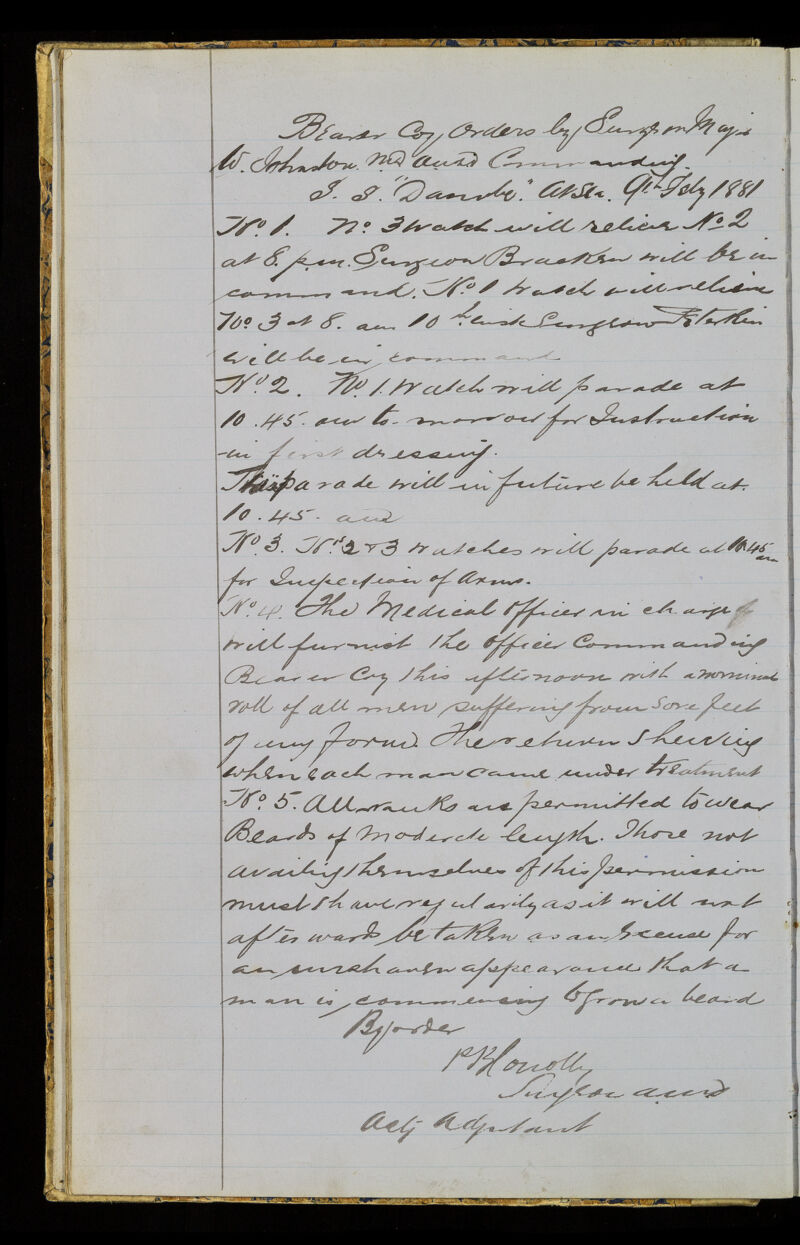 Bearer Coy Orders by Surgeon Major
W. Johnston M.D. Commanding.
T. S. "Danube." At Sea. 9th Feby 1881
No. 1. No. 3 Watch will relieve No 2
at 8. p.m. Surgeon Bracken will be in
command. No 1 Watch will relieve
No. 3 at 8. am 10th inst Surgeon
will be in command
No 2. No. 1. Watch will parade at
10.45. am to-morrow for Instruction
in first dressing.
This parade will in future be held at
10.45. am
No 3. Nos 2 & 3 Watches will parade at 10.45 am
for Inspection of Arms.
No. 4. The Medical Officer in charge
will furnish the Officer Commanding
Bearer Coy this afternoon with a nominal
roll of all men suffering from sore feet
of any form. The return shewing
when each man came under treatment
No. 5. All ranks are permitted to wear
Beards of moderate length. Those not
availing themselves of this permission
must shave regularily as it will not
afterwards be taken as an excuse for
an unshaven appearance that a
man is commencing to grow a beard
By order
Surgeon
Actg Adjutant